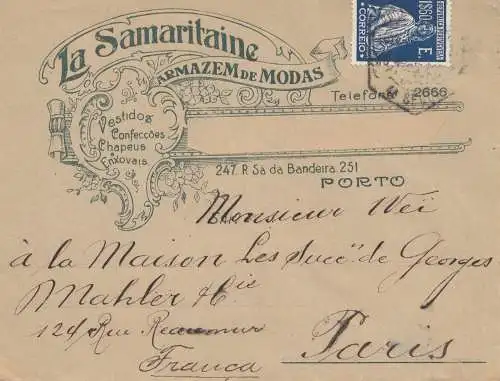 La Samaritaine
ARMAZEM DE MODAS
REPUBLICA PORTUGUESA
CORREIO
1$50 E.
Telefone 2666
Vestidos
Confecções
Chapeus
Enxovais
247. R. Sá da Bandeira. 251
PORTO
Monsieur Weï
à la Maison Les Succ.rs de Georges
Mahler & Cie
124 Rue Reaumur
Paris
França